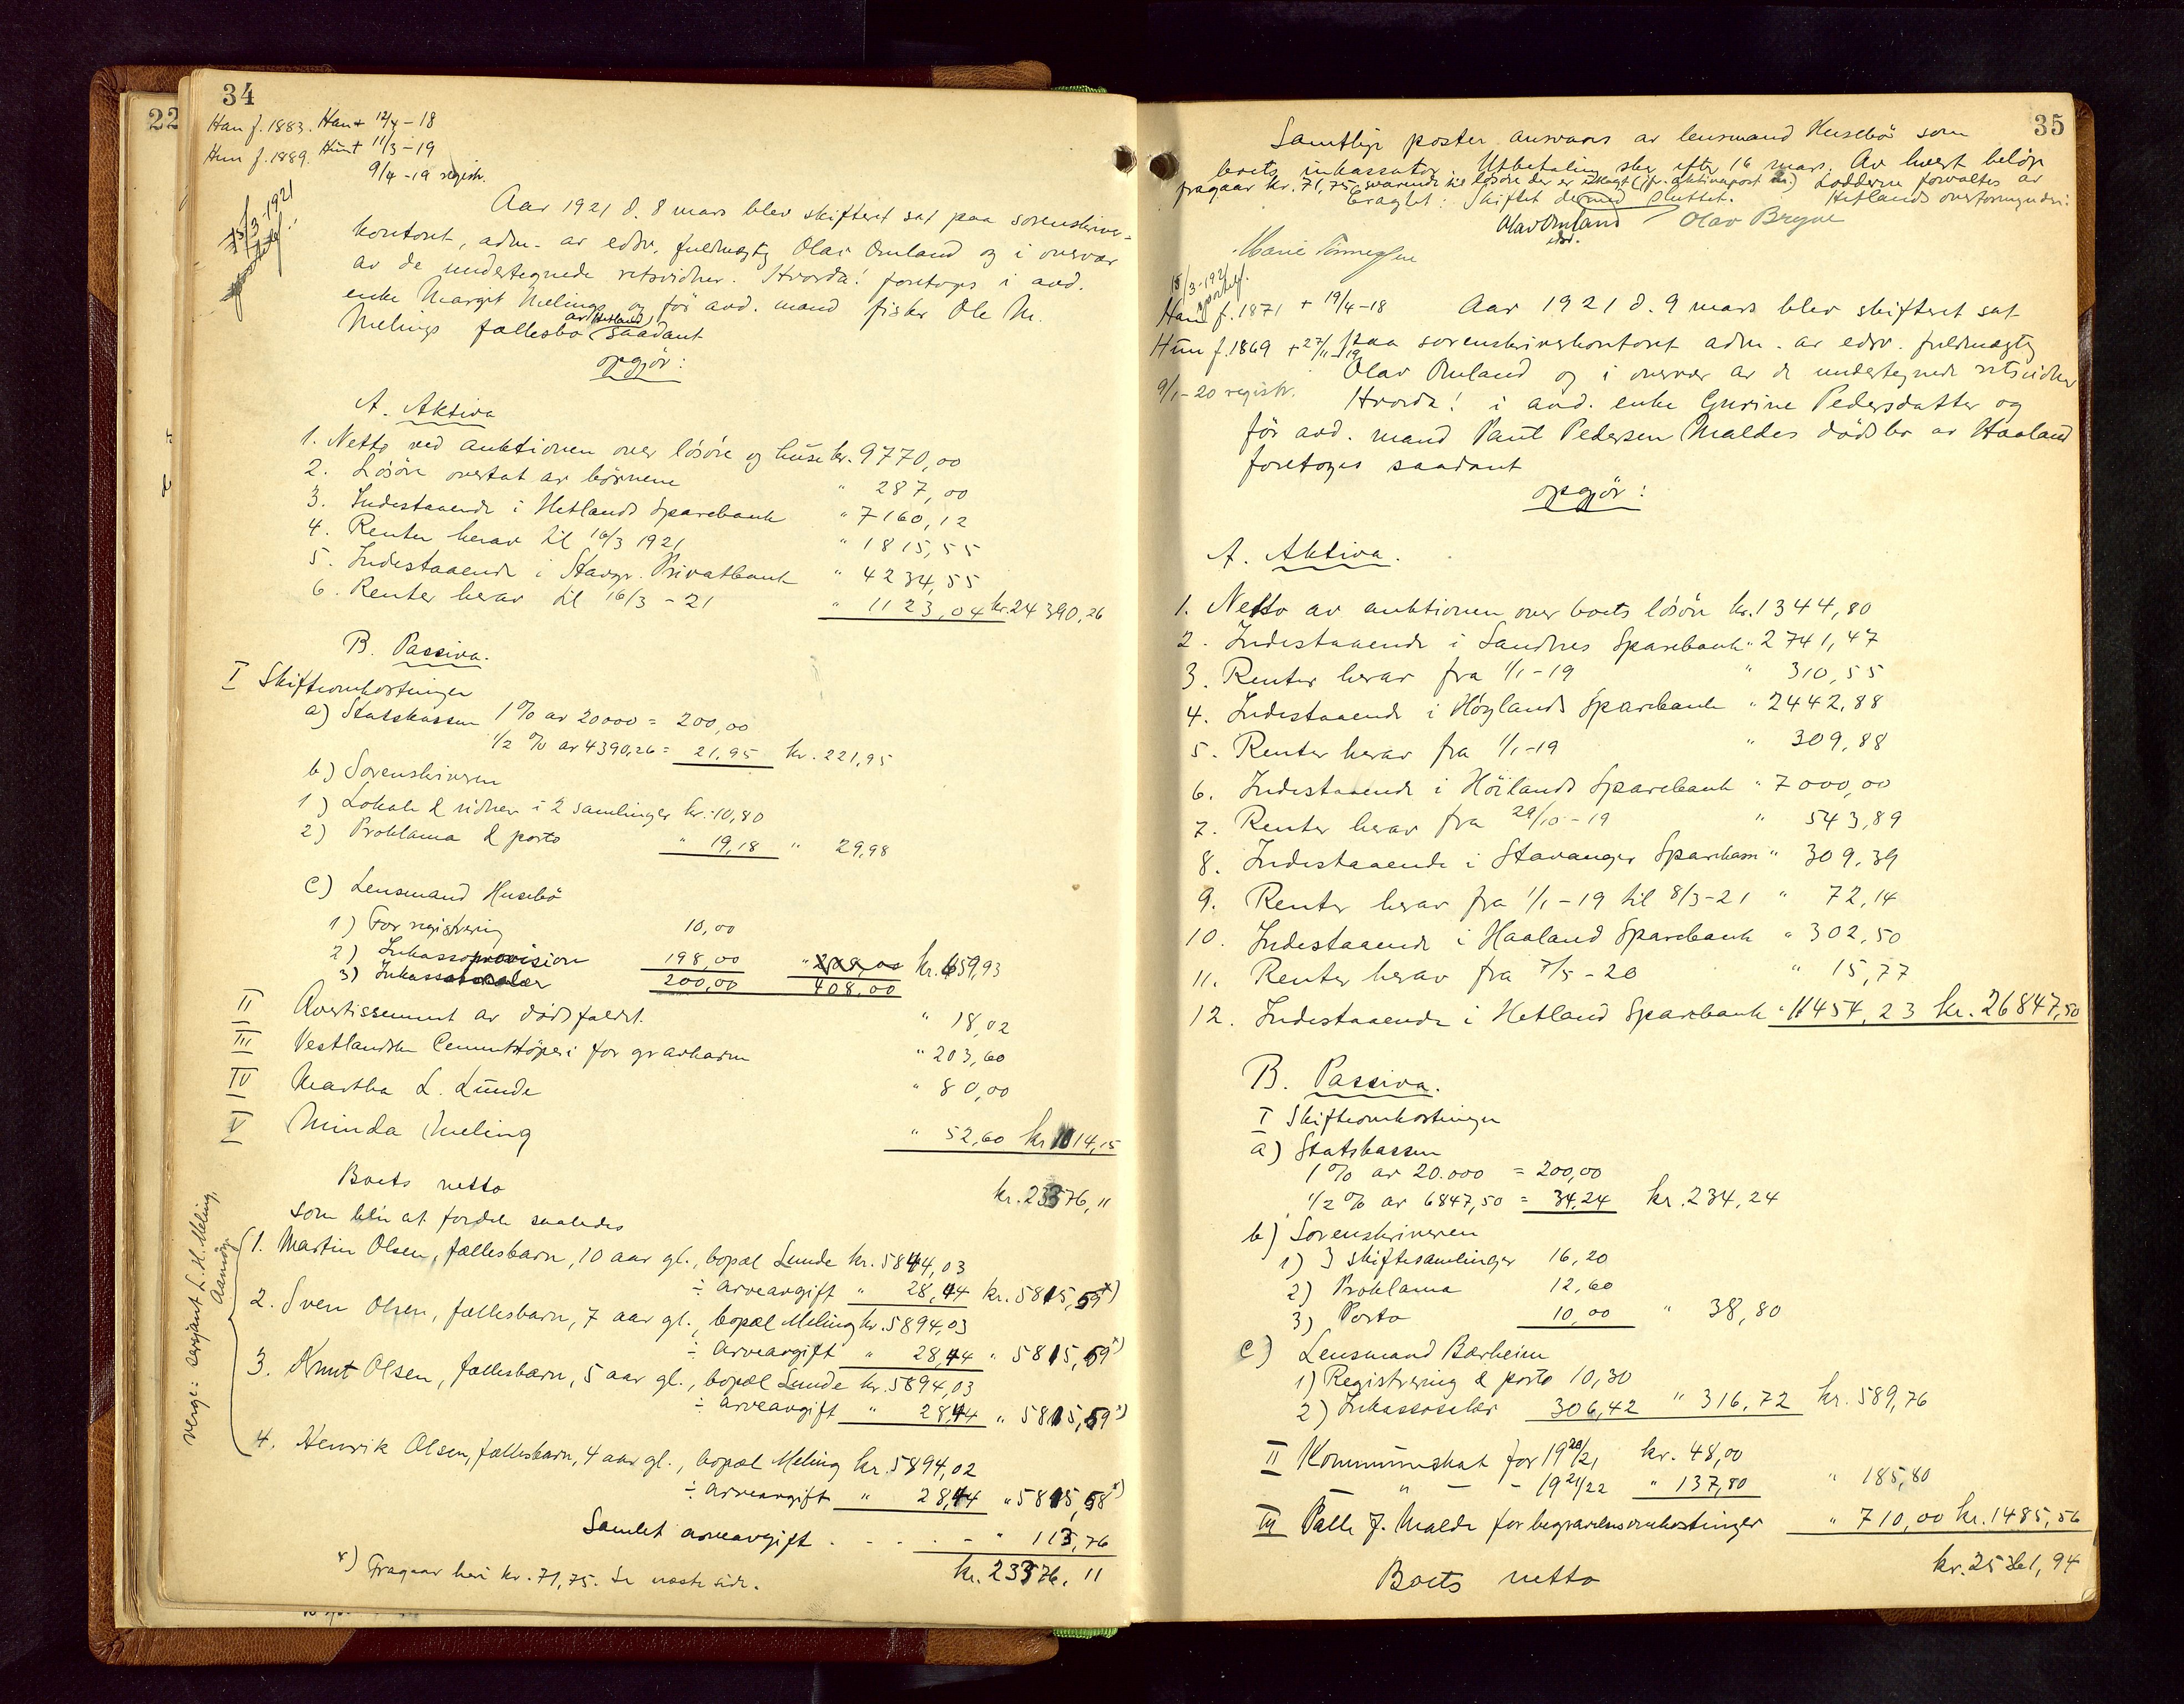 34
22
Han f. 1883. Han + 12/4 - 18
Hun f. 1889. Hun + 11/3 - 19
9/4 - 19 registr.
Aar 1921 d. 8 mars blev skifteret sat paa sorenskriver-
kontoret, adm. av edsv. fuldmegtig Olav Omland og i overvær
av de undertegnede retsvidner. Hvorda! foretoges i avd.
enke Margit Melings og før avd. mand fisker Ole M.
Melings fællesbo av Hetland, saadant
opgjør:
A. Aktiva
1. Netto ved auktionen over løsøre og huse kr. 9770,00
2. Løsøre overtat av børnene " 287,00
3. Indestaaende i Hetlands Sparebank " 7160,12
4. Renter herav til 16/3 1921 " 1815,55
5. Indestaaende i Stavgr. Privatbank " 4234,55
6. Renter herav til 16/3 - 21 " 1123,04 kr. 24390,26
B. Passiva.
I Skifteomkostninger
a) Statskassen 1% av 20000 = 200,00
1/2 % av 4390,26 = 21,95 kr. 221,95
b) Sorenskriveren
1) Lokale & vidner i 2 samlinger kr. 10,80
2) Proklama & porto " 19,18 " 29,98
c) Lensmand Husebø
1) For registrering 10,00
2) Inkassoprovision 198,00
3) Inkasso 200,00 408,00 kr. 659,93
II Avertissement av dødsfaldet. " 18,02
III Vestlandske Cementstøperi for gravkarm " 203,60
IV Martha L. Lunde " 80,00
V Minda Meling " 52,60 kr. 1014,15
Boets netto kr. 23376,11
som blir at fordele saaledes
verge: sersjant L. H. Meling,
1. Martin Olsen, fællesbarn, 10 aar gl., bopæl Lunde kr. 5844,03
÷ arveavgift " 28,44 kr. 5815,59 x)
2. Sven Olsen, fællesbarn, 7 aar gl., bopæl Meling kr. 5894,03
÷ Arveavgift " 28,44 " 5815,59 x)
3. Knut Olsen, fællesbarn, 5 aar gl., bopæl Lunde kr. 5894,03
÷ arveavgift " 28,44 " 5815,59 x)
4. Henrik Olsen, fællesbarn, 4 aar gl., bopæl Meling kr. 5894,02
÷ arveavgift " 28,44 " 5815,58 x)
Samlet arveavgift . . . . - " 113,76
kr. 23376,11
x) Fragaar heri kr. 71,75. Se næste side.
35
Samtlige poster ansvares av lensmand Husebø som
boets inkassator. Utbetaling sker efter 16 mars. Av hvert beløp
fragaar kr. 71,75 svarende til løsøre der er utlagt (jfr. aktivapost 2.) Lodderne forvaltes av
Eragtet: Skiftet dermed sluttet. Hetlands overformynderi.
Olav Omland Olav Bryne
edsv.
Marie Tønnessen
18/3 - 1921
Han f. 1871 + 19/4 - 18 Aar 1921 d. 9 mars blev skifteret sat
Hun f. 1869 + 27/11 - 19 paa sorenskriverkontoret adm. av edsv. fuldmægtig
Olav Omland og i overvær av de undertegnede retsvidner
9/1 - 20 registr. Hvorda! i avd. enke Gurine Pedersdatter og
før avd. mand Paul Pedersen Maldes dødsbo av Haaland
foretoges saadant
opgjør:
A. Aktiva.
1. Netto av auktionen over boets løsøre kr. 1344,80
2. Indestaaende i Sandnes Sparebank " 2741,47
3. Renter herav fra 1/1 - 19 " 310,55
4. Indestaaende i Høylands Sparebank " 2442,88
5. Renter herav fra 1/1 - 19 " 309,88
6. Indestaaende i Høilands Sparebank " 7000,00
7. Renter herav fra 29/10 - 19 " 543,89
8. Indestaaende i Stavanger Sparekasse " 309,39
9. Renter herav fra 1/1 - 19 til 8/3 - 21 " 72,14
10. Indestaaende i Haaland Sparebank " 302,50
11. Renter herav fra 7/5 - 20 " 15,77
12. Indestaaende i Hetland Sparebank " 11454,23 kr. 26847,50
B. Passiva.
I Skifteomkostninger
a) Statskassen
1% av 20.000 = 200,00
1/2 % av 6847,50 = 34,24 kr. 234,24
b) Sorenskriveren
1) 3 skiftesamlinger 16,20
2) Proklama 12,60
3) Porto 10,00 " 38,80
c) Lensmand Bærheim
1) Registrering & porto 10,30
2) Inkassosalær 306,42 " 316,72 kr. 589,76
II Kommuneskat for 1920/21 kr. 48,00
" - - 1921/22 " 137,80 " 185,80
III Palle J. Malde for begravelsesomkostninger " 710,00 kr. 1485,56
Boets netto kr. 25361,94